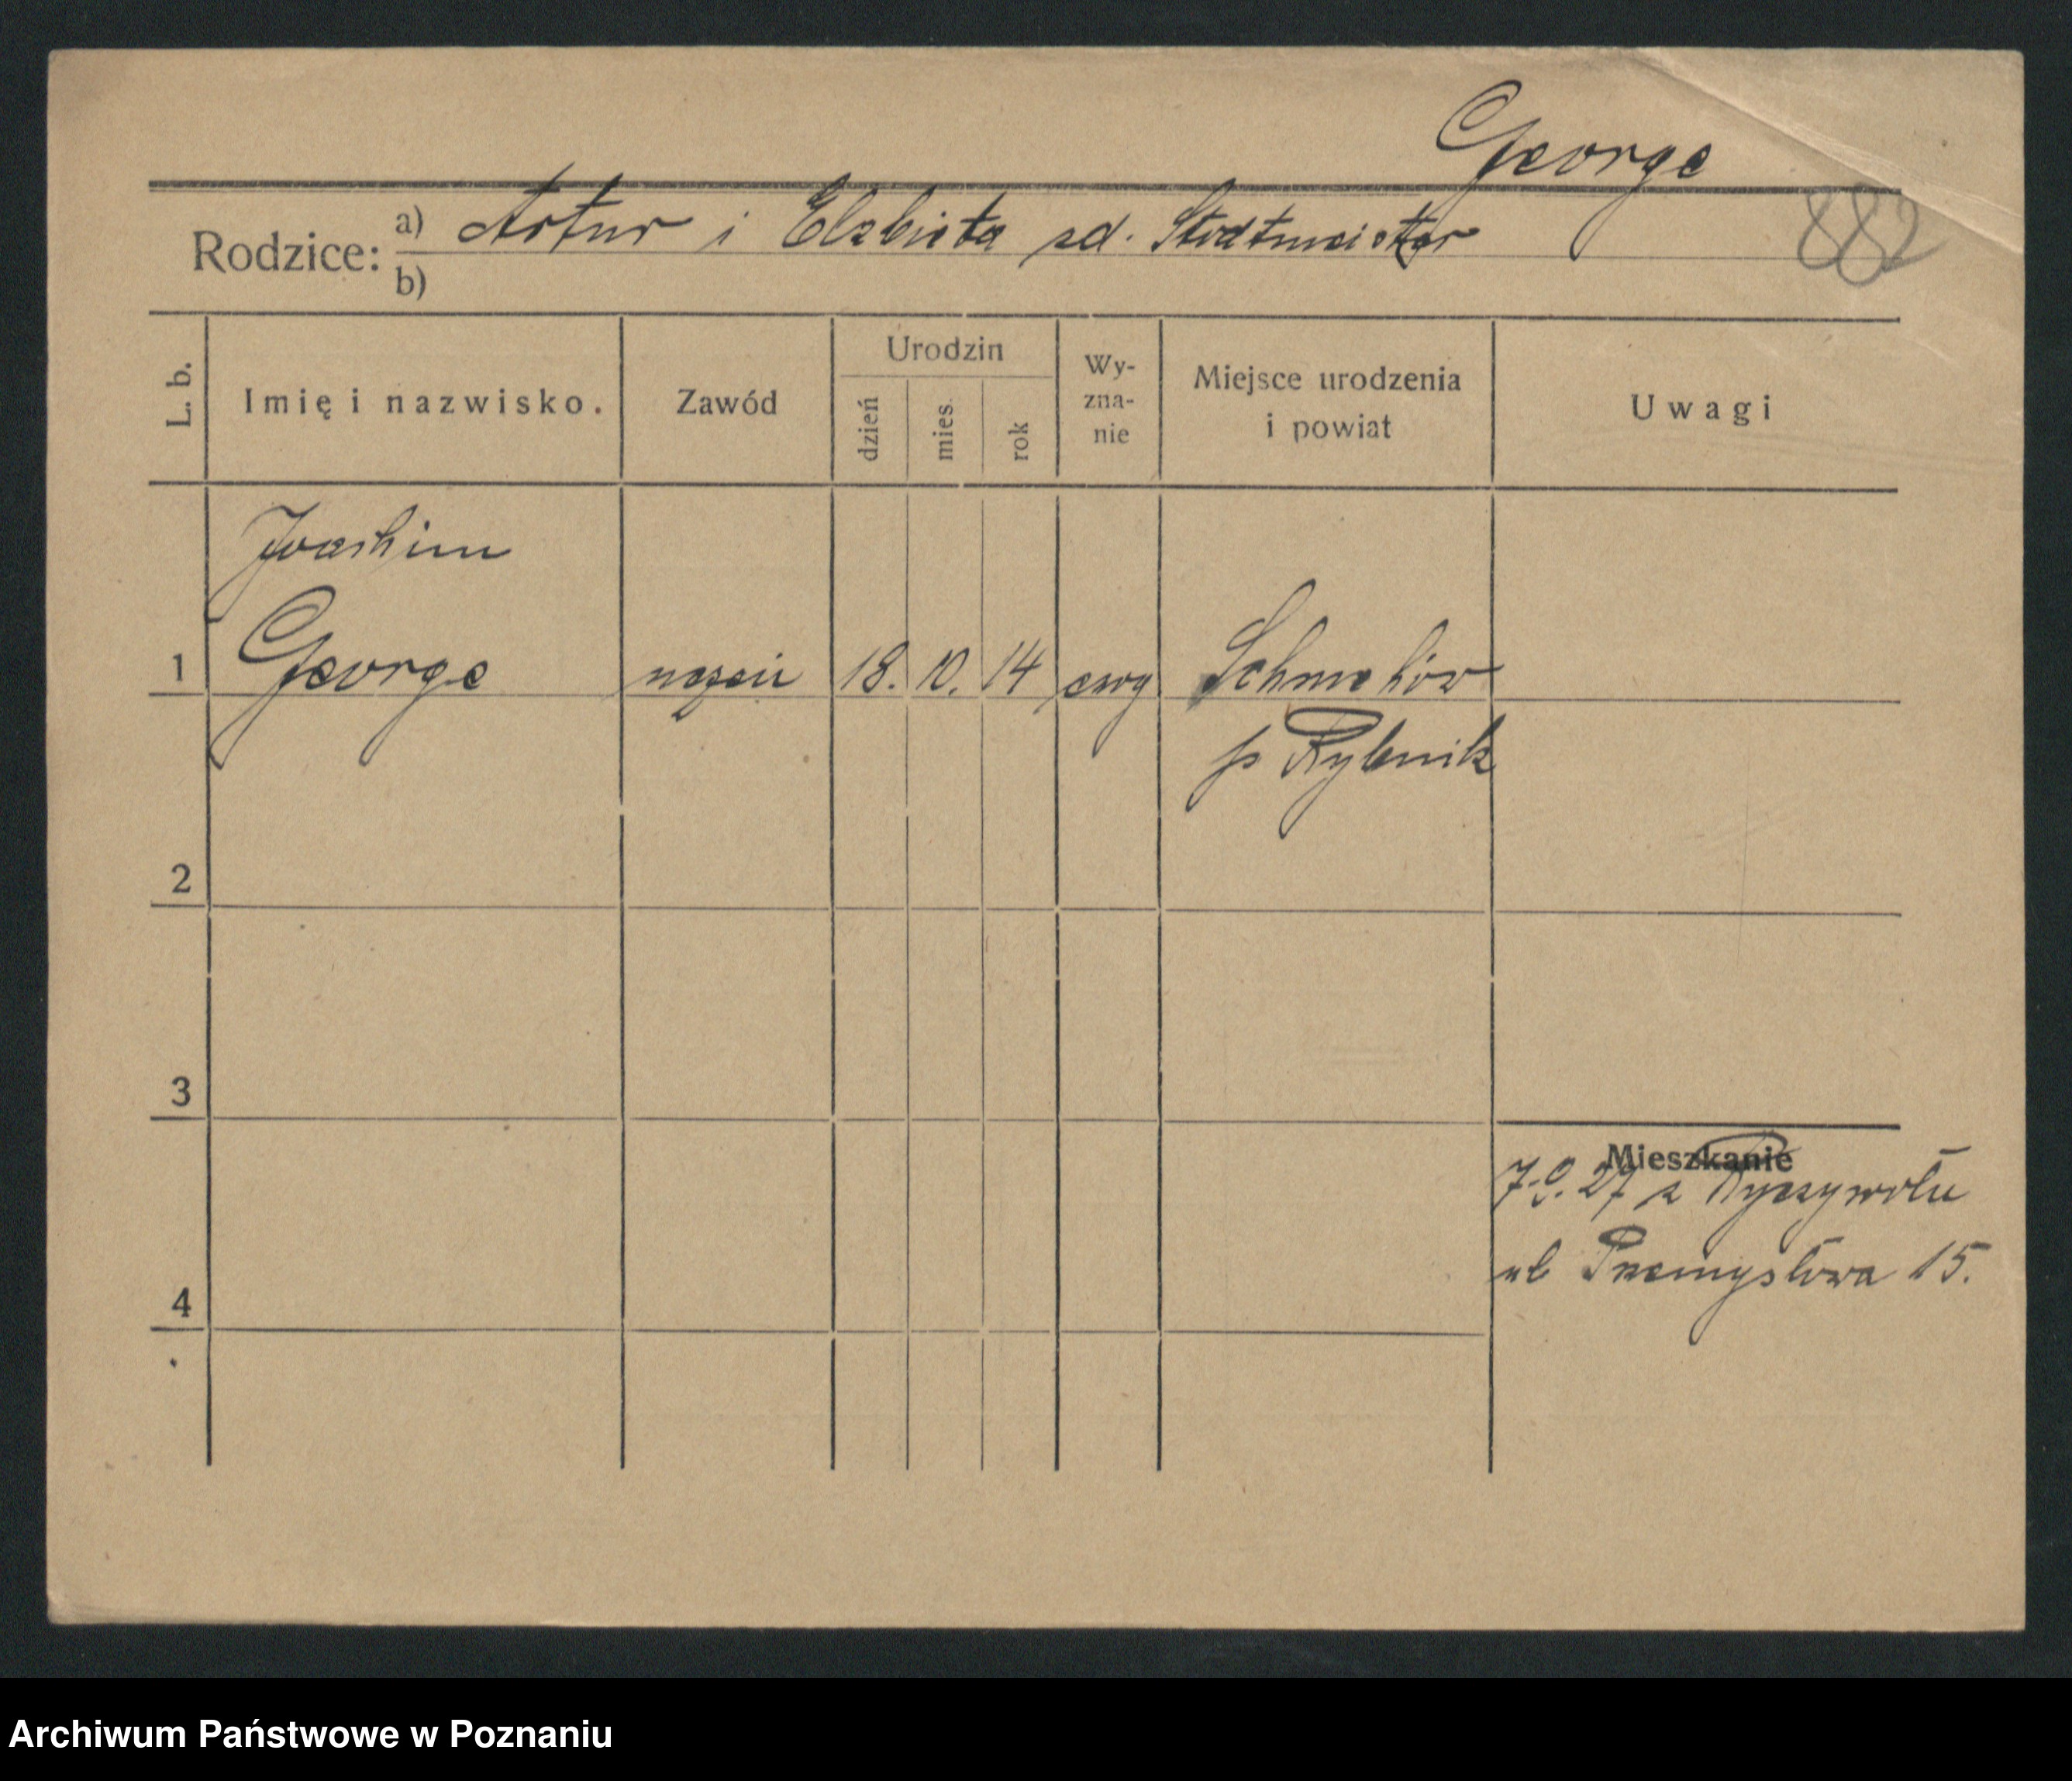 George
882
Rodzice: a) Artur i Elzbieta zd. Stodtmeister
b)
L. b. Imię i nazwisko. Zawód Urodzin dzień mies. rok Wy-zna-nie Miejsce urodzenia i powiat Uwagi
Joachim
1 George uczeń 18. 10. 14 ewg
p Rybnik
2
3
Mieszkanie
7.9. 27 z Ryczywołu
4 ul Przemysłowa 15.
Archiwum Państwowe w Poznaniu